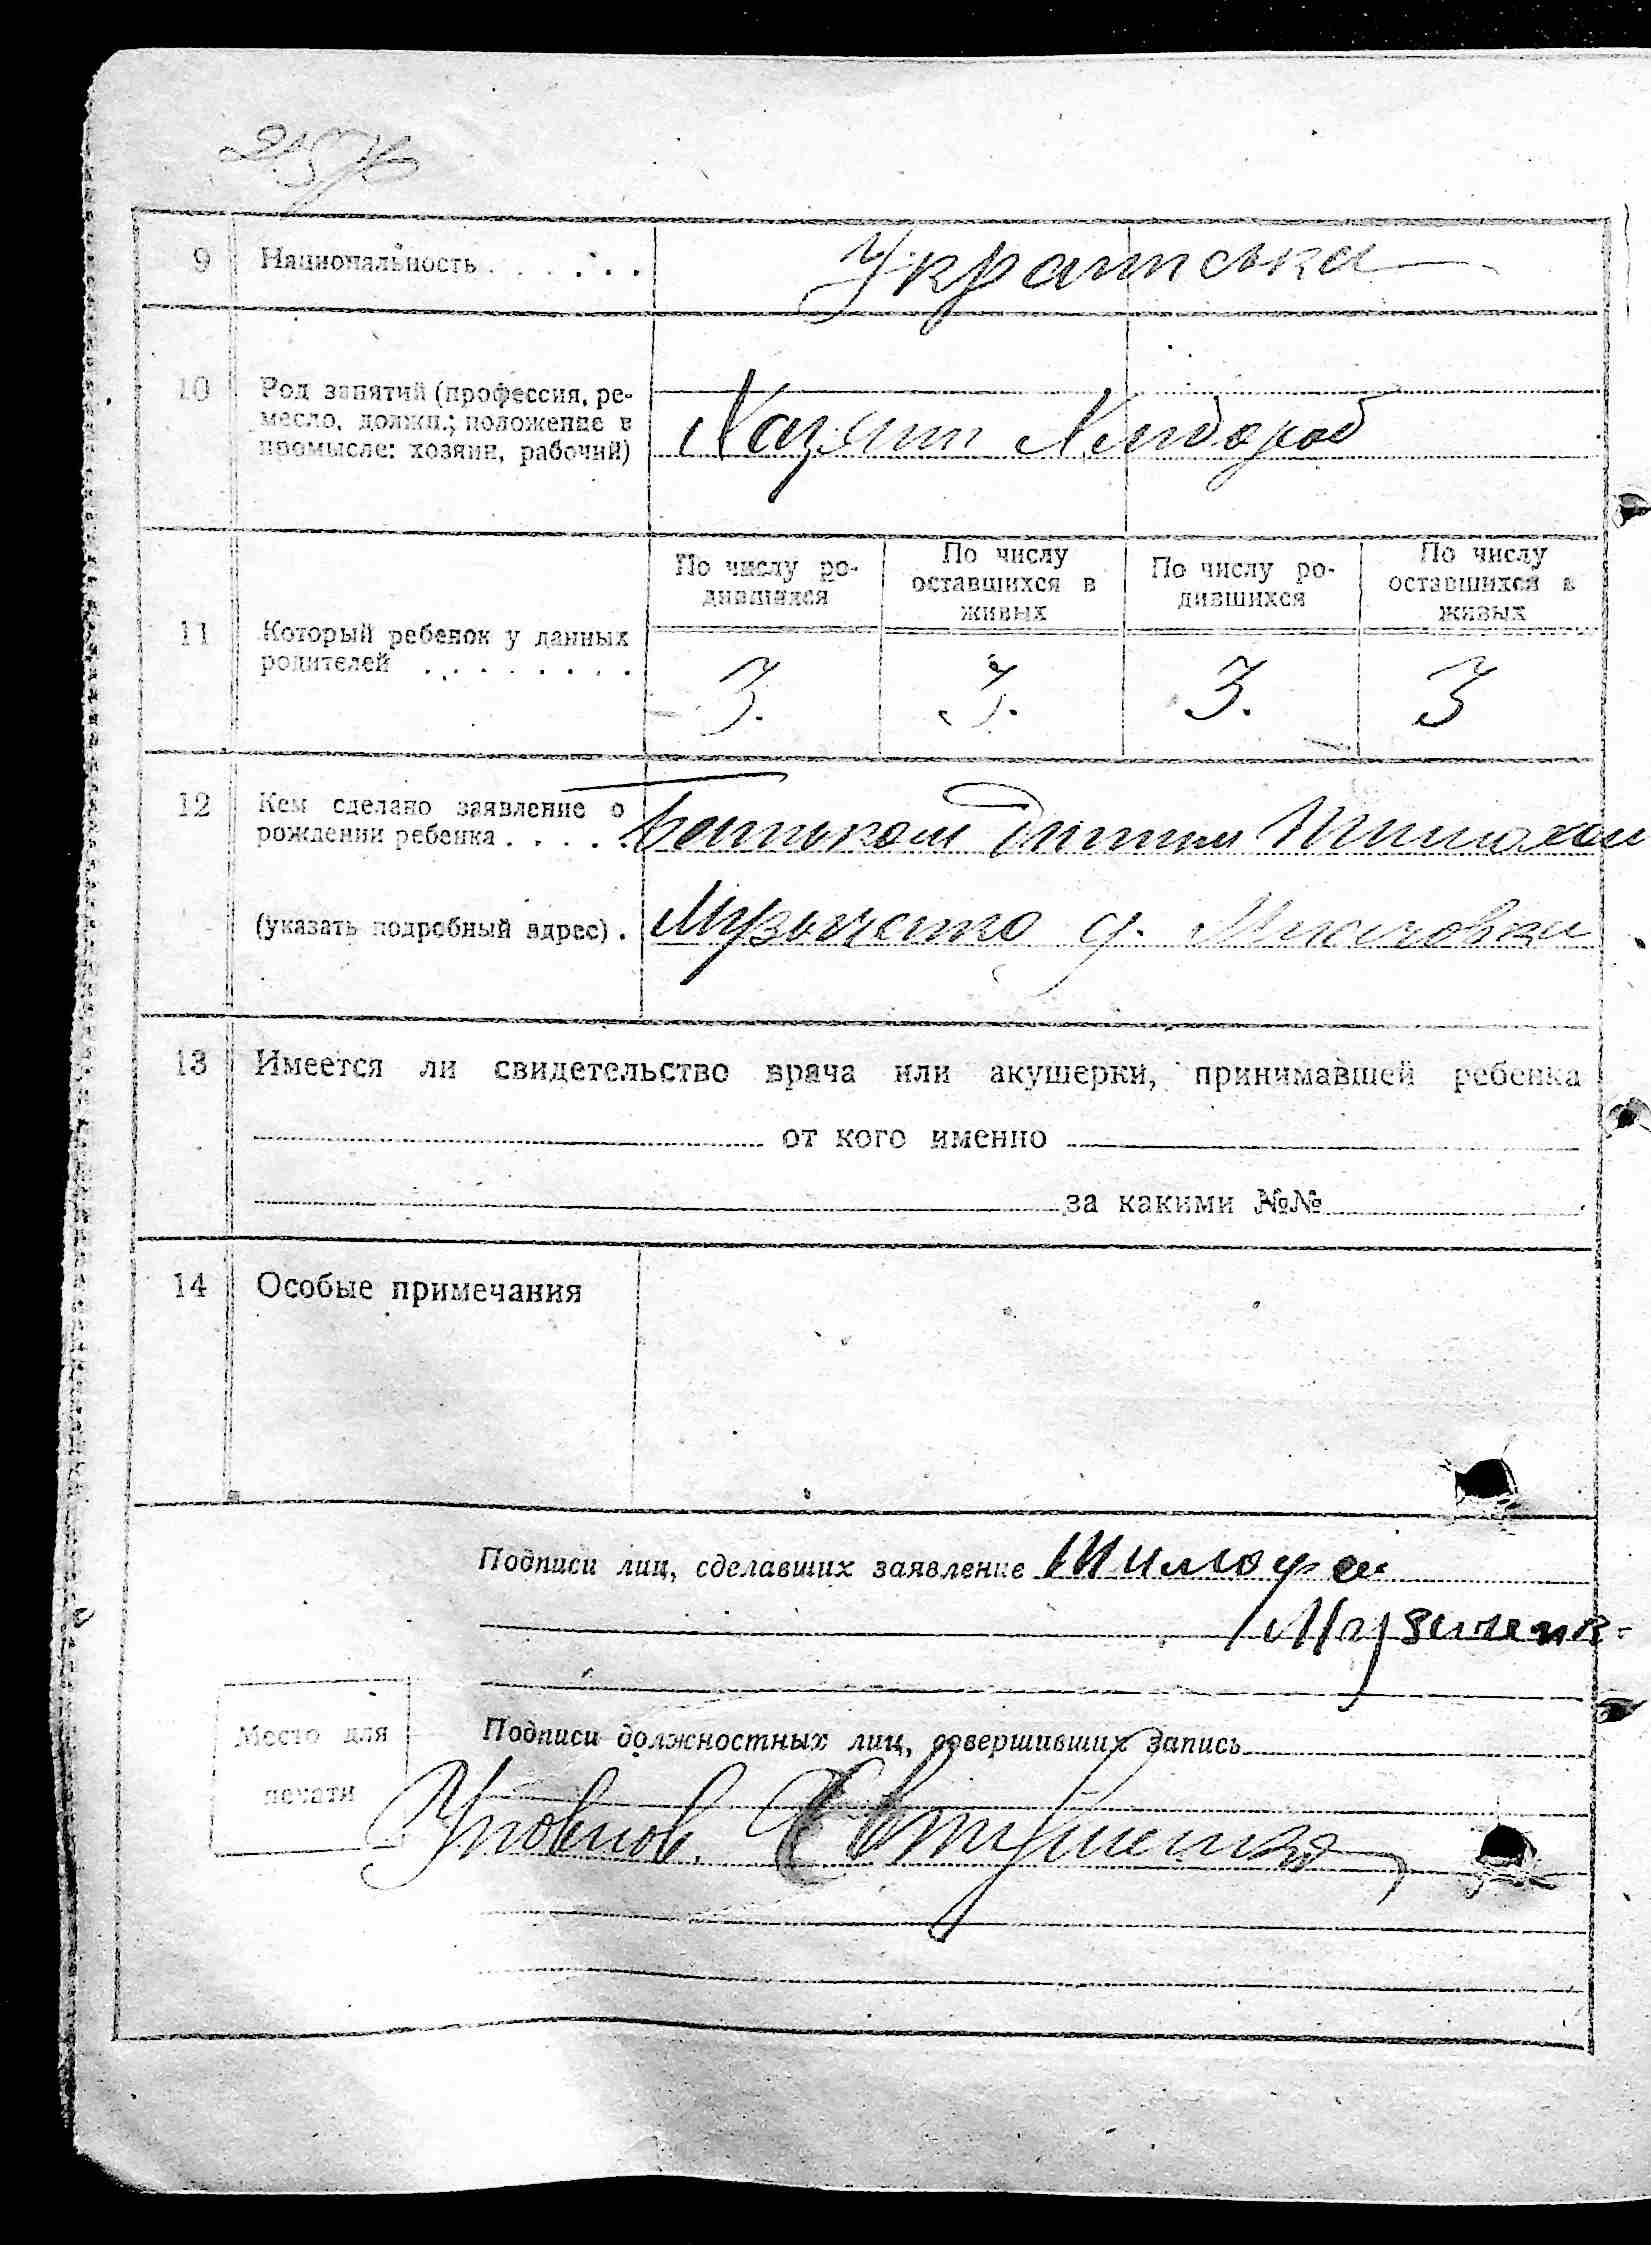 9 Национальность . . . . . . Українська
10 Род занятий (профессия, ре-
месло, должн.; положение в
промысле: хозяин, рабочий)
Хазяин Хлібороб
По числу ро-
дившихся
По числу
оставшихся в
живых
По числу ро-
дившихся
По числу
оставшихся в
живых
11 Который ребенок у данных
родителей . . . . . . . .
3. 3. 3. 3
12 Кем сделано заявление о
рождении ребенка . . . . .
Батьком
(указать подробный адрес) .
Музыченко
13 Имеется ли свидетельство врача или акушерки, принимавшей ребенка
от кого именно
за какими №№
14 Особые примечания
Подписи лиц, сделавших заявление Тимофей
Музиченк
Место для
печати
Подписи должностных лиц, совершивших запись
Уповнов. Євтушенко